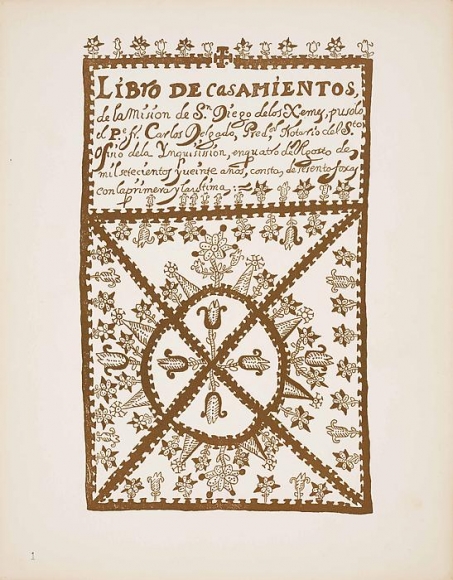 LIBRO DE CASAMIENTOS,
de la Mision de Sn. Diego delos Xemes, pusolo
el Pe. fr. Carlos Delgado, Pred.or Notario del Sto
Ofício dela Ynquisision, en quatro del Agosto de
mil setecientos y veinte años, consta, de sesenta foxas
con la primera y la ultima,
1